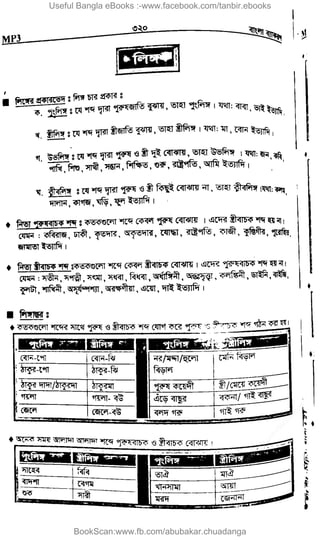 Useful Bangla eBooks :-www.facebook.com/tanbir.ebooks
MP3
৩২০
বাংলা ব্যাকরণ
লিঙ্গ
■ লিঙ্গের প্রকারভেদ : লিঙ্গ চার প্রকার :
ক. পুংলিঙ্গ : যে শব্দ দ্বারা পুরুষজাতি বুঝায়, তাহা পুংলিঙ্গ । যথা: বাবা, ভাই ইত্যাদি.
খ. স্ত্রীলিঙ্গ : যে শব্দ দ্বারা স্ত্রীজাতি বুঝায়, তাহা স্ত্রীলিঙ্গ । যথা: মা, বোন ইত্যাদি।
গ. উভলিঙ্গ : যে শব্দ দ্বারা পুরুষ ও স্ত্রী দুই বোঝায়, তাহা উভলিঙ্গ । যথা: জন, কবি,
পাখি, শিশু, সাথী, সন্তান, শিক্ষিত, গুরু, রাষ্ট্রপতি, আমি ইত্যাদি ।
ঘ. ক্লীবলিঙ্গ : যে শব্দ দ্বারা পুরুষ ও স্ত্রী কিছুই বোঝায় না, তাহা ক্লীবলিঙ্গ। যথা: কলম,
দালান, কাগজ, ঘড়ি, ফুল ইত্যাদি ।
♦ নিত্য পুরুষবাচক শব্দ : কতকগুলো শব্দে কেবল পুরুষ বোঝায় । এদের স্ত্রীবাচক শব্দ হয় না।
যেমন : কবিরাজ, ঢাকী, কৃতদার, অকৃতদার, যোদ্ধা, রাষ্ট্রপতি, কাজী, পুরোহিত,
জামাতা ইত্যাদি ।
♦ নিত্য স্ত্রীবাচক শব্দ : কতকগুলো শব্দে কেবল স্ত্রীবাচক বোঝায় । এদের পুরুষবাচক শব্দ হয় না ।
যেমন : সতীন, সপত্নী, সৎমা, সধবা, বিধবা, অর্ধাঙ্গিনী, অন্তঃসত্ত্বা, কলঙ্কিনী, ডাইনি, বাইজি,
কুলটা, শাঁখিনী, অসূর্যম্পশ্যা, অরক্ষণীয়া, এয়ো, দাই ইত্যাদি ।
■ লিঙ্গান্তর :
♦ কতকগুলো শব্দের মাঝে পুরুষ ও স্ত্রীবাচক শব্দ যোগ করে পুরুষ ও স্ত্রীবাচক শব্দ গঠন করা হয়।
পুংলিঙ্গ স্ত্রীলিঙ্গ পুংলিঙ্গ স্ত্রীলিঙ্গ
বোন-পো বোন-ঝি নর/মদ্দা/হুলো মেনি বিড়াল
ঠাকুর-পো ঠাকুর-ঝি বিড়াল
ঠাকুর দাদা/ঠাকুরদা ঠাকুরমা পুরুষ কয়েদী স্ত্রী/মেয়ে কয়েদী
গয়লা গয়লা- বউ এঁড়ে বাছুর বকনা/ গাই বাছুর
জেলে জেলে-বউ বলদ গরু গাই গরু
♦ অনেক সময় আলাদা আলাদা শব্দে পুরুষবাচক ও স্ত্রীবাচক বোঝায় ।
পুংলিঙ্গ স্ত্রীলিঙ্গ পুংলিঙ্গ স্ত্রীলিঙ্গ
সাহেব বিবি তাঐ মাঐ
বাদশা বেগম খানসামা আয়া
শুক সারী মরদ জেনানা
BookScan:www.fb.com/abubakar.chuadanga